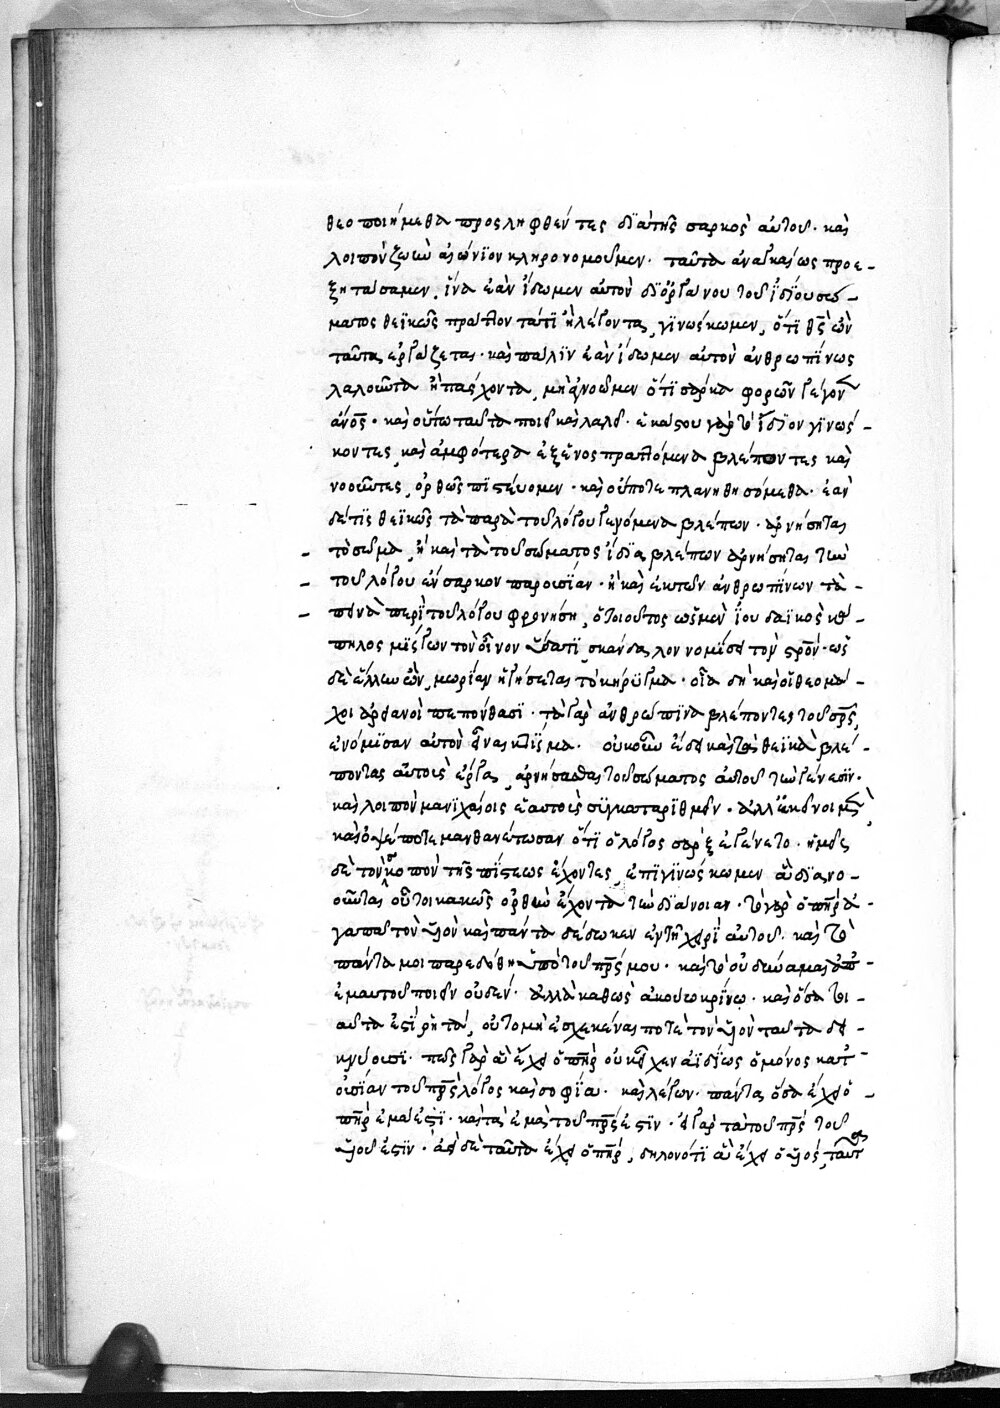 θεοποιήμεθα προσληφθέντες διὰ τῆς σαρκὸς αὐτοῦ· καὶ
λοιπὸν ζωὴν αἰώνιον κληρονομοῦμεν· ταῦτα ἀναγκαίως προε-
ξητάσαμεν, ἵνα ἐὰν ἴδωμεν αὐτὸν δι' ὀργάνου τοῦ ἰδίου σώ-
ματος θεϊκῶς πράττοντά τι ἢ λέγοντα, γινώσκωμεν, ὅτι θς ὢν
ταῦτα ἐργάζεται· καὶ πάλιν ἐὰν ἴδωμεν αὐτὸν ἀνθρωπίνως
λαλοῦντα ἢ πάσχοντα, μὴ ἀγνοῶμεν ὅτι σάρκα φορῶν γέγονεν
ἄνος· καὶ οὕτω ταῦτα ποιεῖ καὶ λαλεῖ· ἑκάστου γὰρ τὸ ἴδιον γινώσ-
κοντες, καὶ ἀμφότερα ἐξ ἑνὸς πραττόμενα βλέποντες καὶ
νοοῦντες, ὀρθῶς πιστεύομεν· καὶ οὔποτε πλανηθησόμεθα· ἐὰν
δέ τις θεϊκῶς τὰ παρὰ τοῦ λόγου γεγόμενα βλέπων· ἀρνήσηται
τὸ σῶμα, ἢ καὶ τὰ τοῦ σώματος ἴδια βλέπων ἀρνήσηται τὴν
τοῦ λόγου ἔνσαρκον παρουσίαν· ἢ καὶ ἐκ τῶν ἀνθρωπίνων τα-
πεινὰ περὶ τοῦ λόγου φρονήσῃ, ὁ τοιοῦτος ὡς μὲν ἰουδαϊκὸς κά-
πηλος μίσγων τὸν οἶνον ὕδατι, σκάνδαλον νομίσει τὸν σρόν· ὡς
δὲ ἕλλην ὢν, μωρίαν ἡγήσεται τὸ κήρυγμα· οἷα δὴ καὶ οἱ θεομά-
χοι ἀρειανοὶ πεπόνθασι· τὰ γὰρ ἀνθρώπινα βλέποντες τοῦ σρς,
ἐνόμισαν αὐτὸν εἶναι κτίσμα· οὐκοῦν ἔδει καὶ τὰ θεϊκὰ βλέ-
ποντας αὐτοὺς ἔργα, ἀρνήσασθαι τοῦ σώματος αὐτοῦ τὴν γένεσιν·
καὶ λοιπὸν μανιχαίοις ἑαυτοὺς συγκαταριθμεῖν· ἀλλ' ἐκεῖνοι μὲν
κἂν ὀψέ ποτε μανθανέτωσαν ὅτι ὁ λόγος σὰρξ ἐγένετο· ἡμεῖς
δὲ τὸν σκοπὸν τῆς πίστεως ἔχοντες, ἐπιγινώσκωμεν ἃ διανο-
οῦνται οὗτοι κακῶς ὀρθὴν ἔχοντα τὴν διάνοιαν· τὸ γὰρ ὁ πηρ ἀ-
γαπᾷ τὸν υἱὸν καὶ πάντα δέδωκεν ἐν τῇ χειρὶ αὐτοῦ· καὶ τὸ
πάντα μοι παρεδόθη ὑπὸ τοῦ πρς μου· καὶ τὸ οὐ δύναμαι ἀπ'
ἐμαυτοῦ ποιεῖν οὐδέν· ἀλλὰ καθὼς ἀκούω κρίνω· καὶ ὅσα τοι-
αῦτά ἐστι ῥητά, οὐ τὸ μὴ ἐσχηκέναι ποτὲ τὸν υἱὸν ταῦτα δεί-
κνυσι· πῶς γὰρ ἃ ἔχει ὁ πηρ οὐκ εἶχεν ἀϊδίως ὁ μόνος κατ'
οὐσίαν τοῦ πρς λόγος καὶ σοφία· καὶ λέγων· πάντα ὅσα ἔχει ὁ
πηρ ἐμά ἐστι· καὶ τὰ ἐμὰ τοῦ πρς ἐστιν· εἰ γὰρ τὰ τοῦ πρς τοῦ
υἱοῦ ἐστιν· ἀεὶ δὲ ταῦτα ἔχει ὁ πηρ, δηλονότι ἃ ἔχει ὁ υἱὸς, ταῦτα